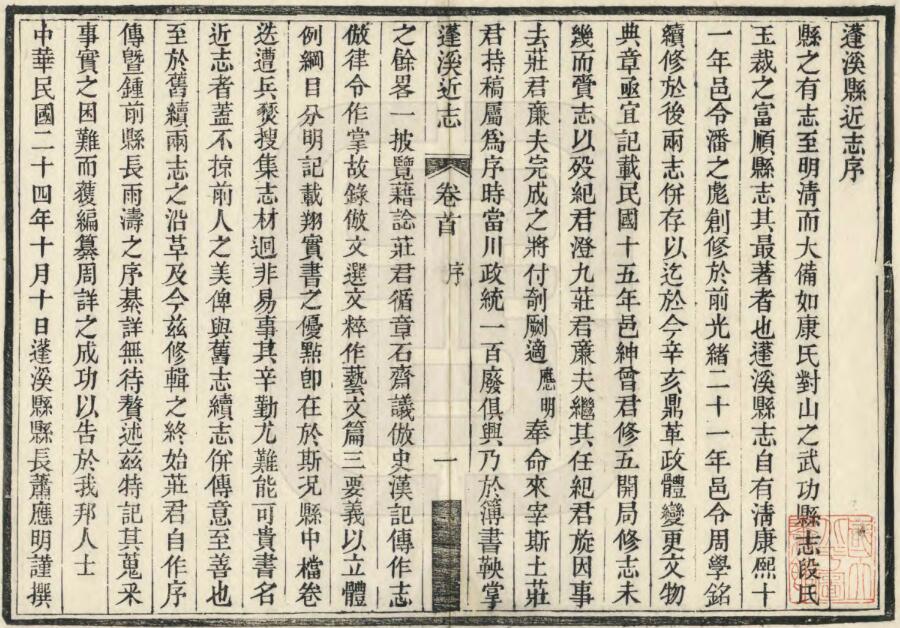 蓬溪縣近志序
縣之有志至明清而大備如康氏對山之武功縣志段氏
玉裁之富順縣志其最著者也蓬溪縣志自有淸康熙十
一年邑令潘之彪創修於前光緒二十一年邑令周學銘
續修於後兩志併存以迄於今辛亥鼎革政體變更文物
典章亟宜記載民國十五年邑紳曾君修五開局修志未
幾而賫志以殁紀君澄九莊君㢘夫繼其任紀君旋因事
去莊君㢘夫完成之將付剞劂適應明奉命來宰斯土莊
君持稿屬爲序時當川政統一百廢俱興乃於簿書鞅掌
蓬溪近志 卷首 序 一
之餘畧一披覽藉諗莊君循章石齋議倣史漢記傳作志
倣律令作掌故錄倣文選文粹作藝文篇三要義以立體
例綱目分明記載翔實書之優點卽在於斯况縣中檔卷
迭遭兵燹搜集志材迴非易事其辛勤尤難能可貴書名
近志者蓋不掠前人之美俾與舊志續志併傳意至善也
至於舊續兩志之沿革及今兹修輯之終始莊君自作序
傳曁鍾前縣長雨濤之序綦詳無待贅述兹特記其蒐采
事實之困難而獲編纂周詳之成功以告於我邦人士
中華民國二十四年十月十日蓬溪縣縣長蕭應明謹撰